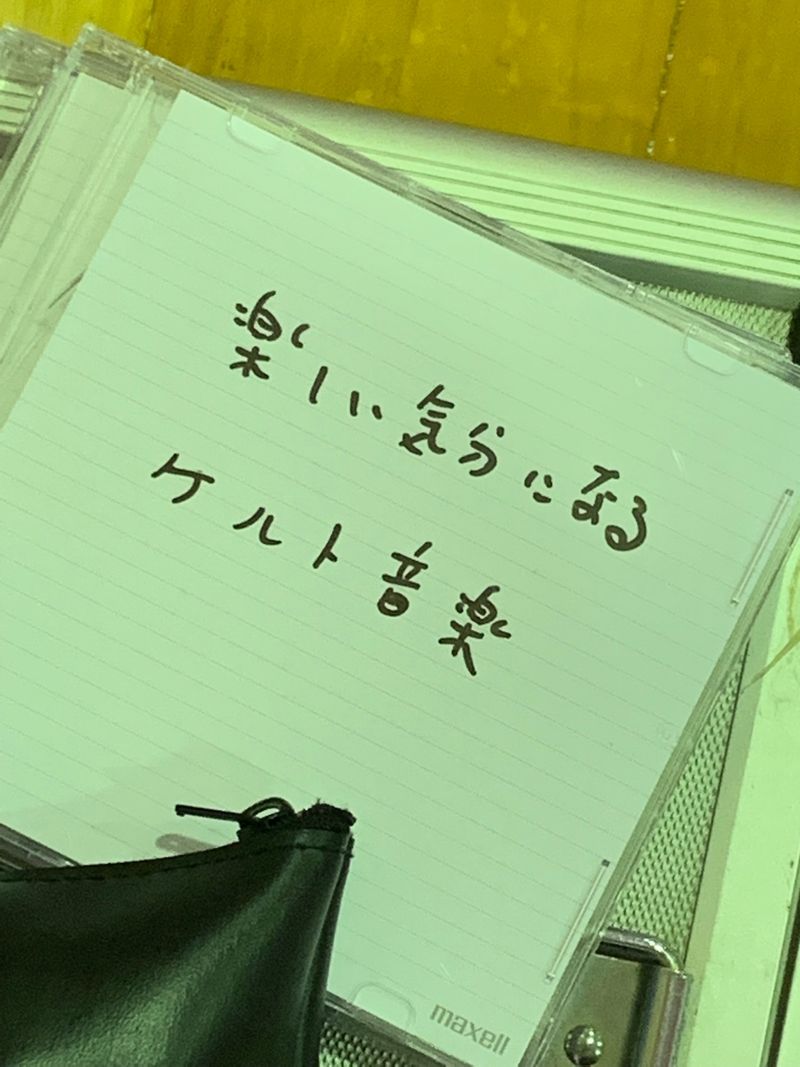 楽しい気分になる
ケルト音楽
maxell